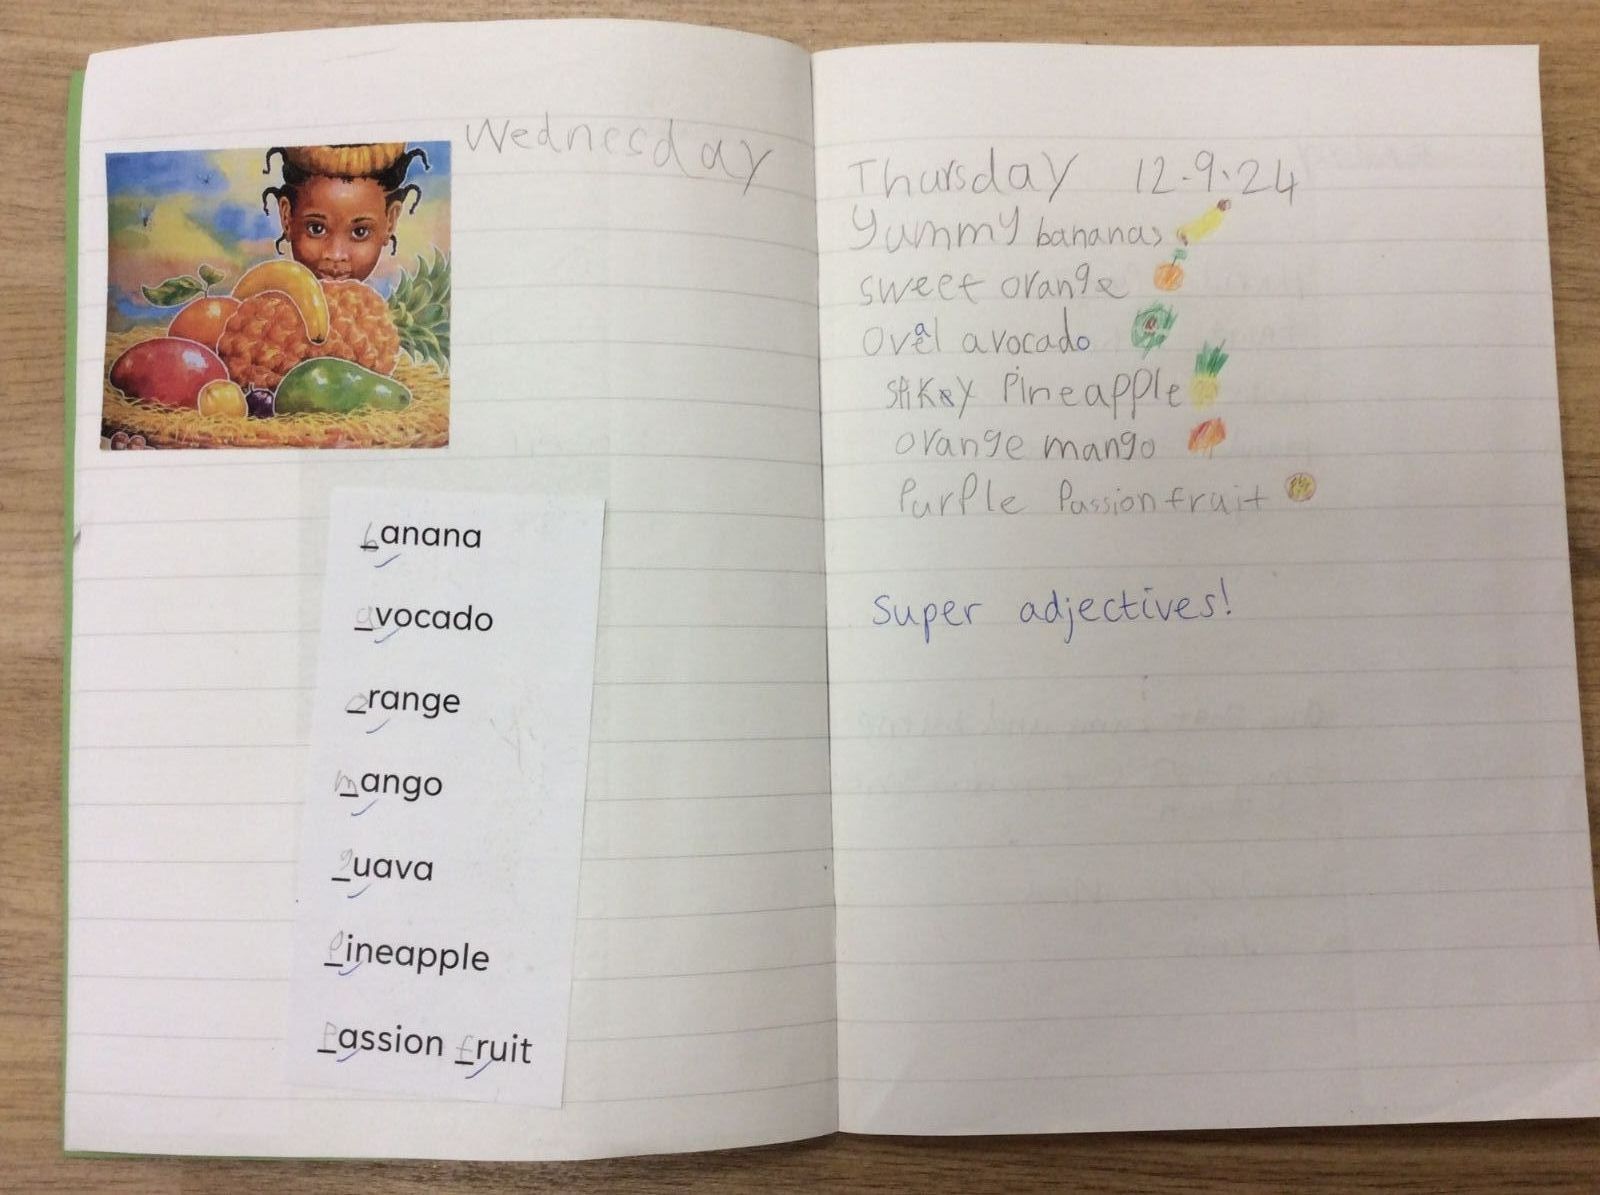 Wednesday
banana
avocado
orange
mango
guava
pineapple
Passion fruit
Thursday 12.9.24
Yummy bananas
sweet orange
Oval avocado
Pineapple
orange mango
Purple Passionfruit
Super adjectives!